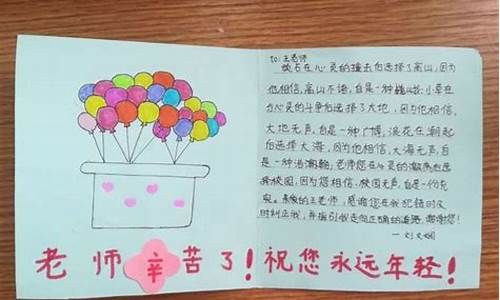 to:王老师
磐石在心灵的撞击后选择了高山,因为
他相信,高山不语,自是一种巍峨;小草在
与心灵的斗争后选择了大地,因为他相信,
大地无声,自是一种广博;浪花在潮起
后选择大海,因为他相信,大海无声,自
是一种浩瀚;老师您在心灵的潮落后选
择校园,因为您相信,校园无声,自是一份充
实。亲爱的王老师,感谢您在我犯错时及
时纠正我,并指引我走向正确的道路,谢谢您!
老师辛苦了!祝您永远年轻!